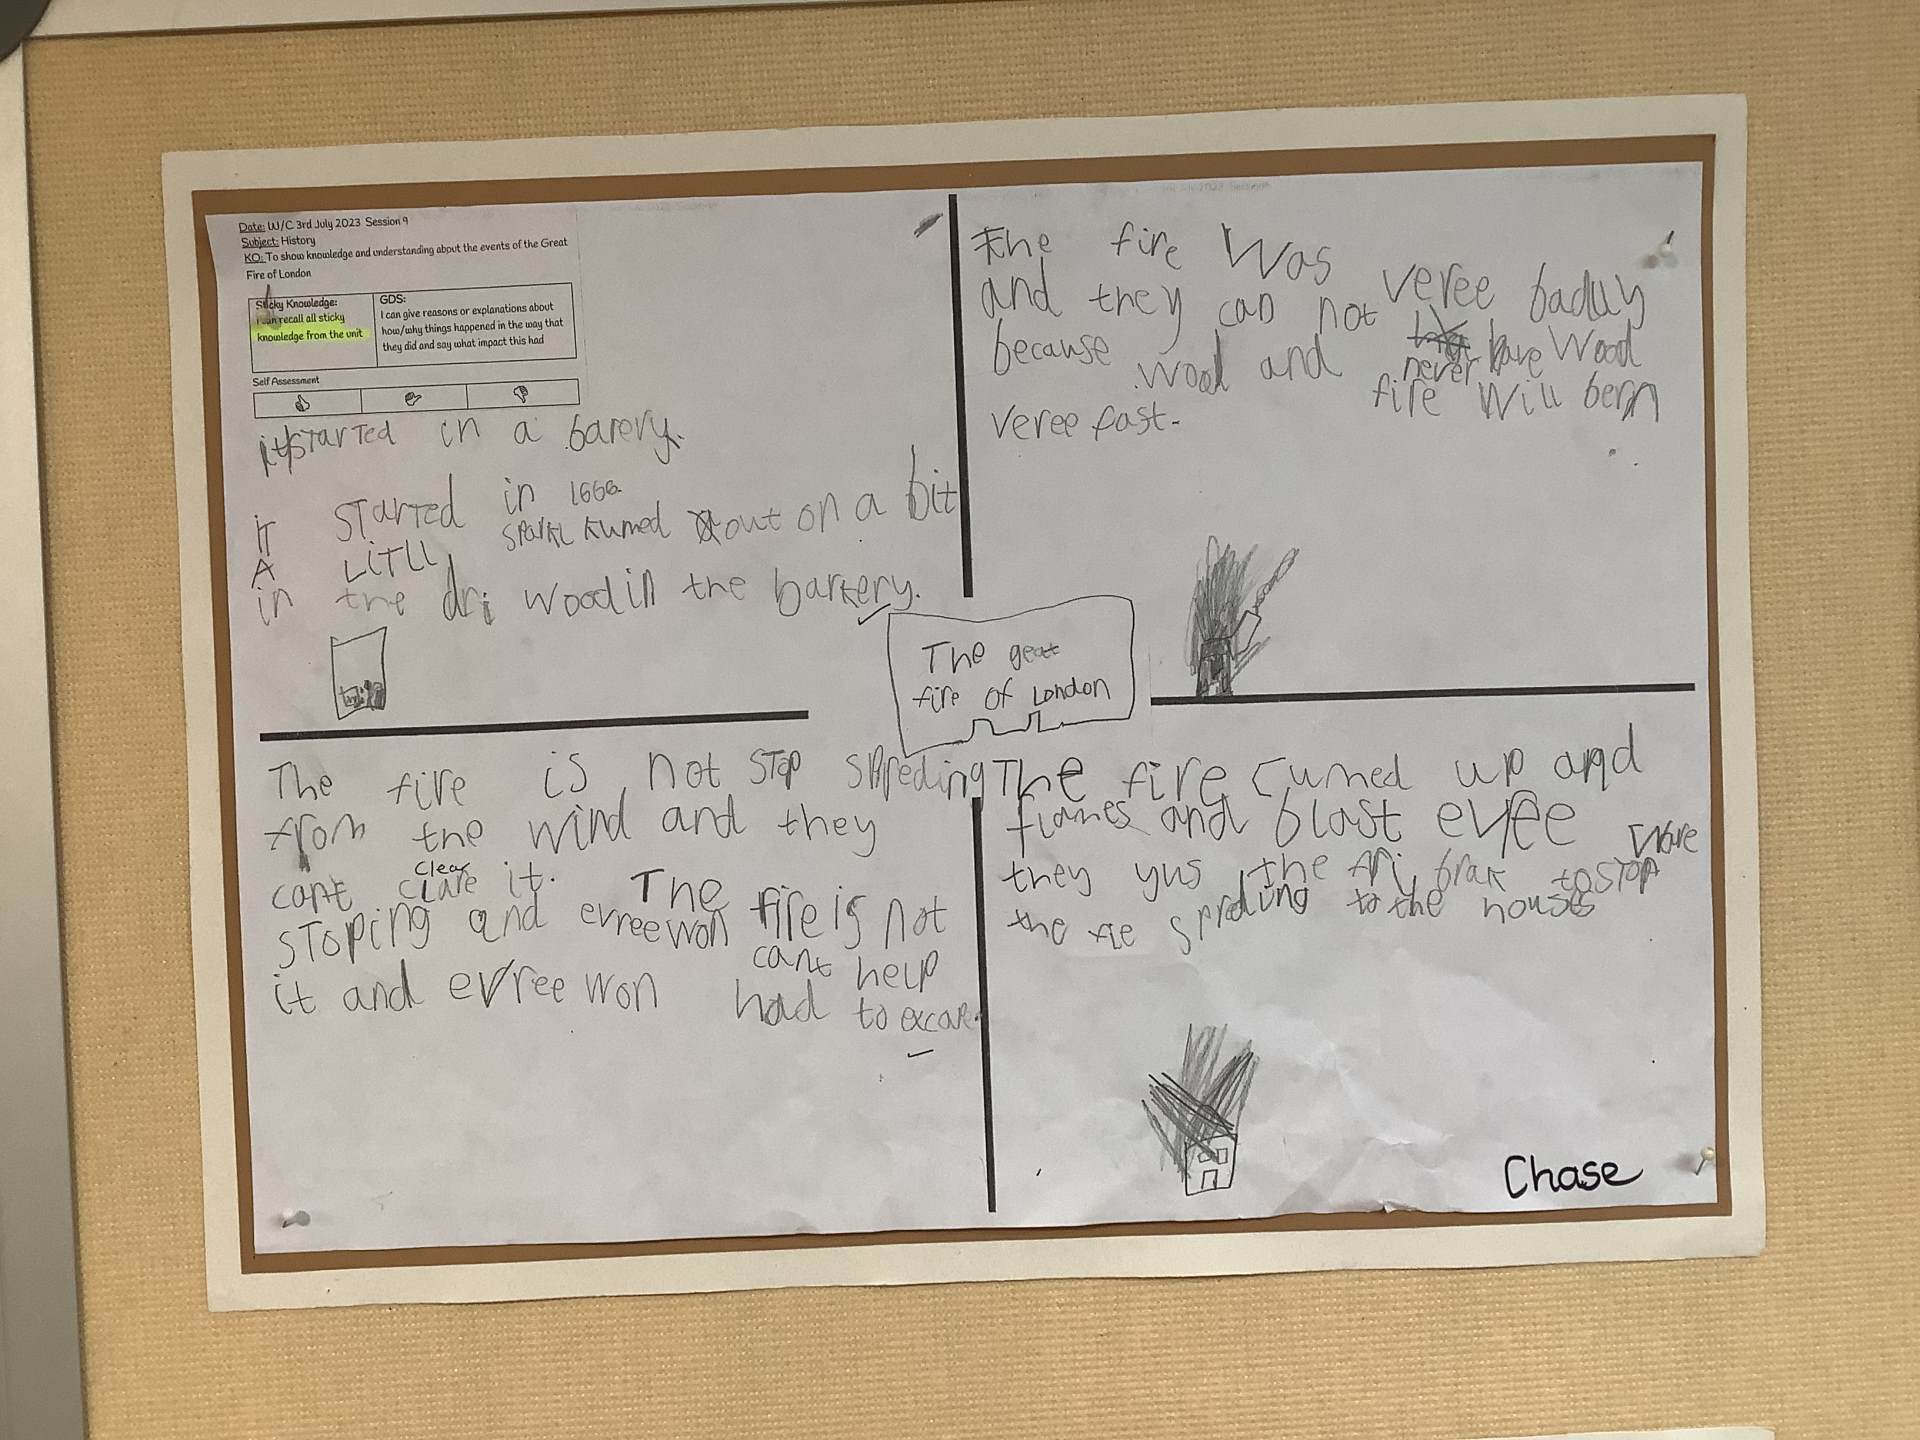 Date: W/C 3rd July 2023 Session 9
Subject: History
KO: To show knowledge and understanding about the events of the Great
Fire of London
Sticky Knowledge:
I can recall all sticky
knowledge from the unit
GDS:
I can give reasons or explanations about
how/why things happened in the way that
they did and say what impact this had
Self Assessment
it started in a barery.
iT STarTed in 1666
A LiTLL sparkl kumed out on a bit
in the dri wood in the barkery.
The fire was veree badluy
and they can not never have wood
because wood and fire will bern
veree fast.
The geat
fire of London
The fire is not STop spreding
from the wind and they
cant clare clear it. The fire is not
SToping and evreewon cant help
it and evree won had to excape.
The fire cumed up and
flames and blast evree ware
they yus the fri brak to STOP
the fie spreding to the houses
Chase